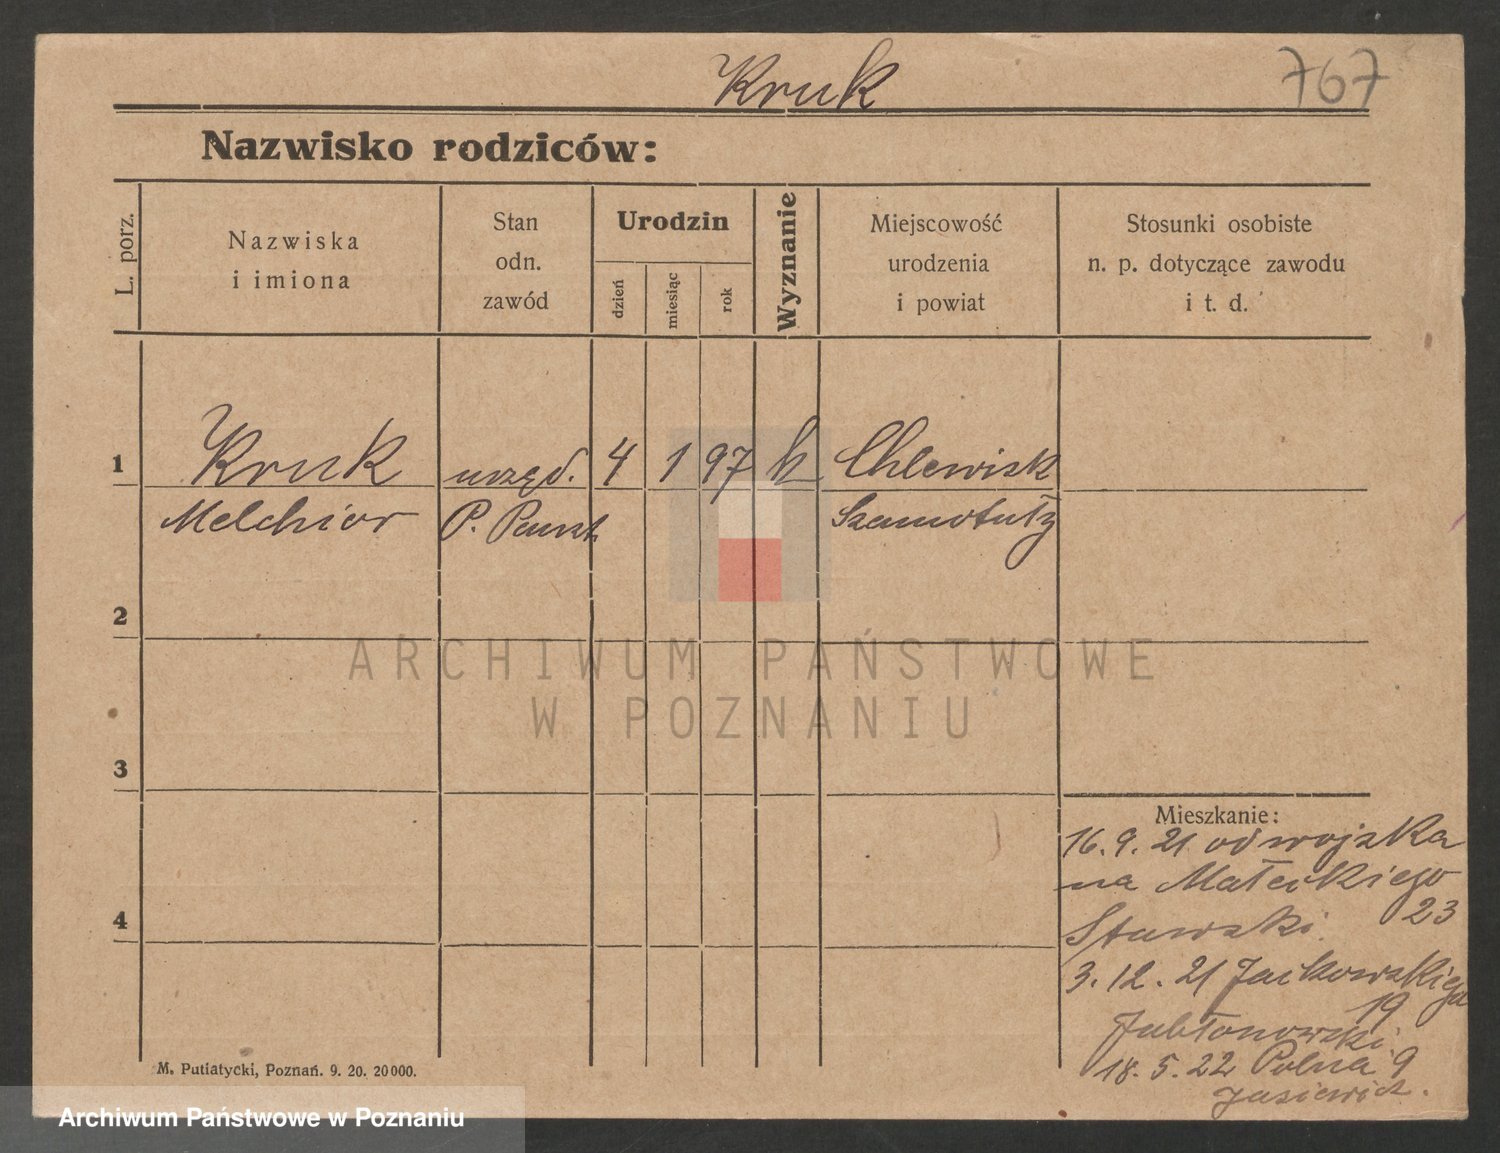 Kruk
767
Nazwisko rodziców:
L. porz.
Nazwiska
i imiona
Stan
odn.
zawód
Urodzin
dzień
miesiąc
rok
Wyznanie
Miejscowość
urodzenia
i powiat
Stosunki osobiste
n. p. dotyczące zawodu
i t. d.
1
Kruk urzęd. 4 1 97 k Chlewisk
Melchior P. Państ. Szamotuły
2
ARCHIWUM PAŃSTWOWE
W POZNANIU
3
Mieszkanie:
16. 9. 21 od wojska
na Małeckiego
23
Stawski
3. 12. 21 Jackowskiego
19
Jabłonowski
18. 5. 22 Polna 9
4
M. Putiatycki, Poznań. 9. 20. 20000.
Archiwum Państwowe w Poznaniu